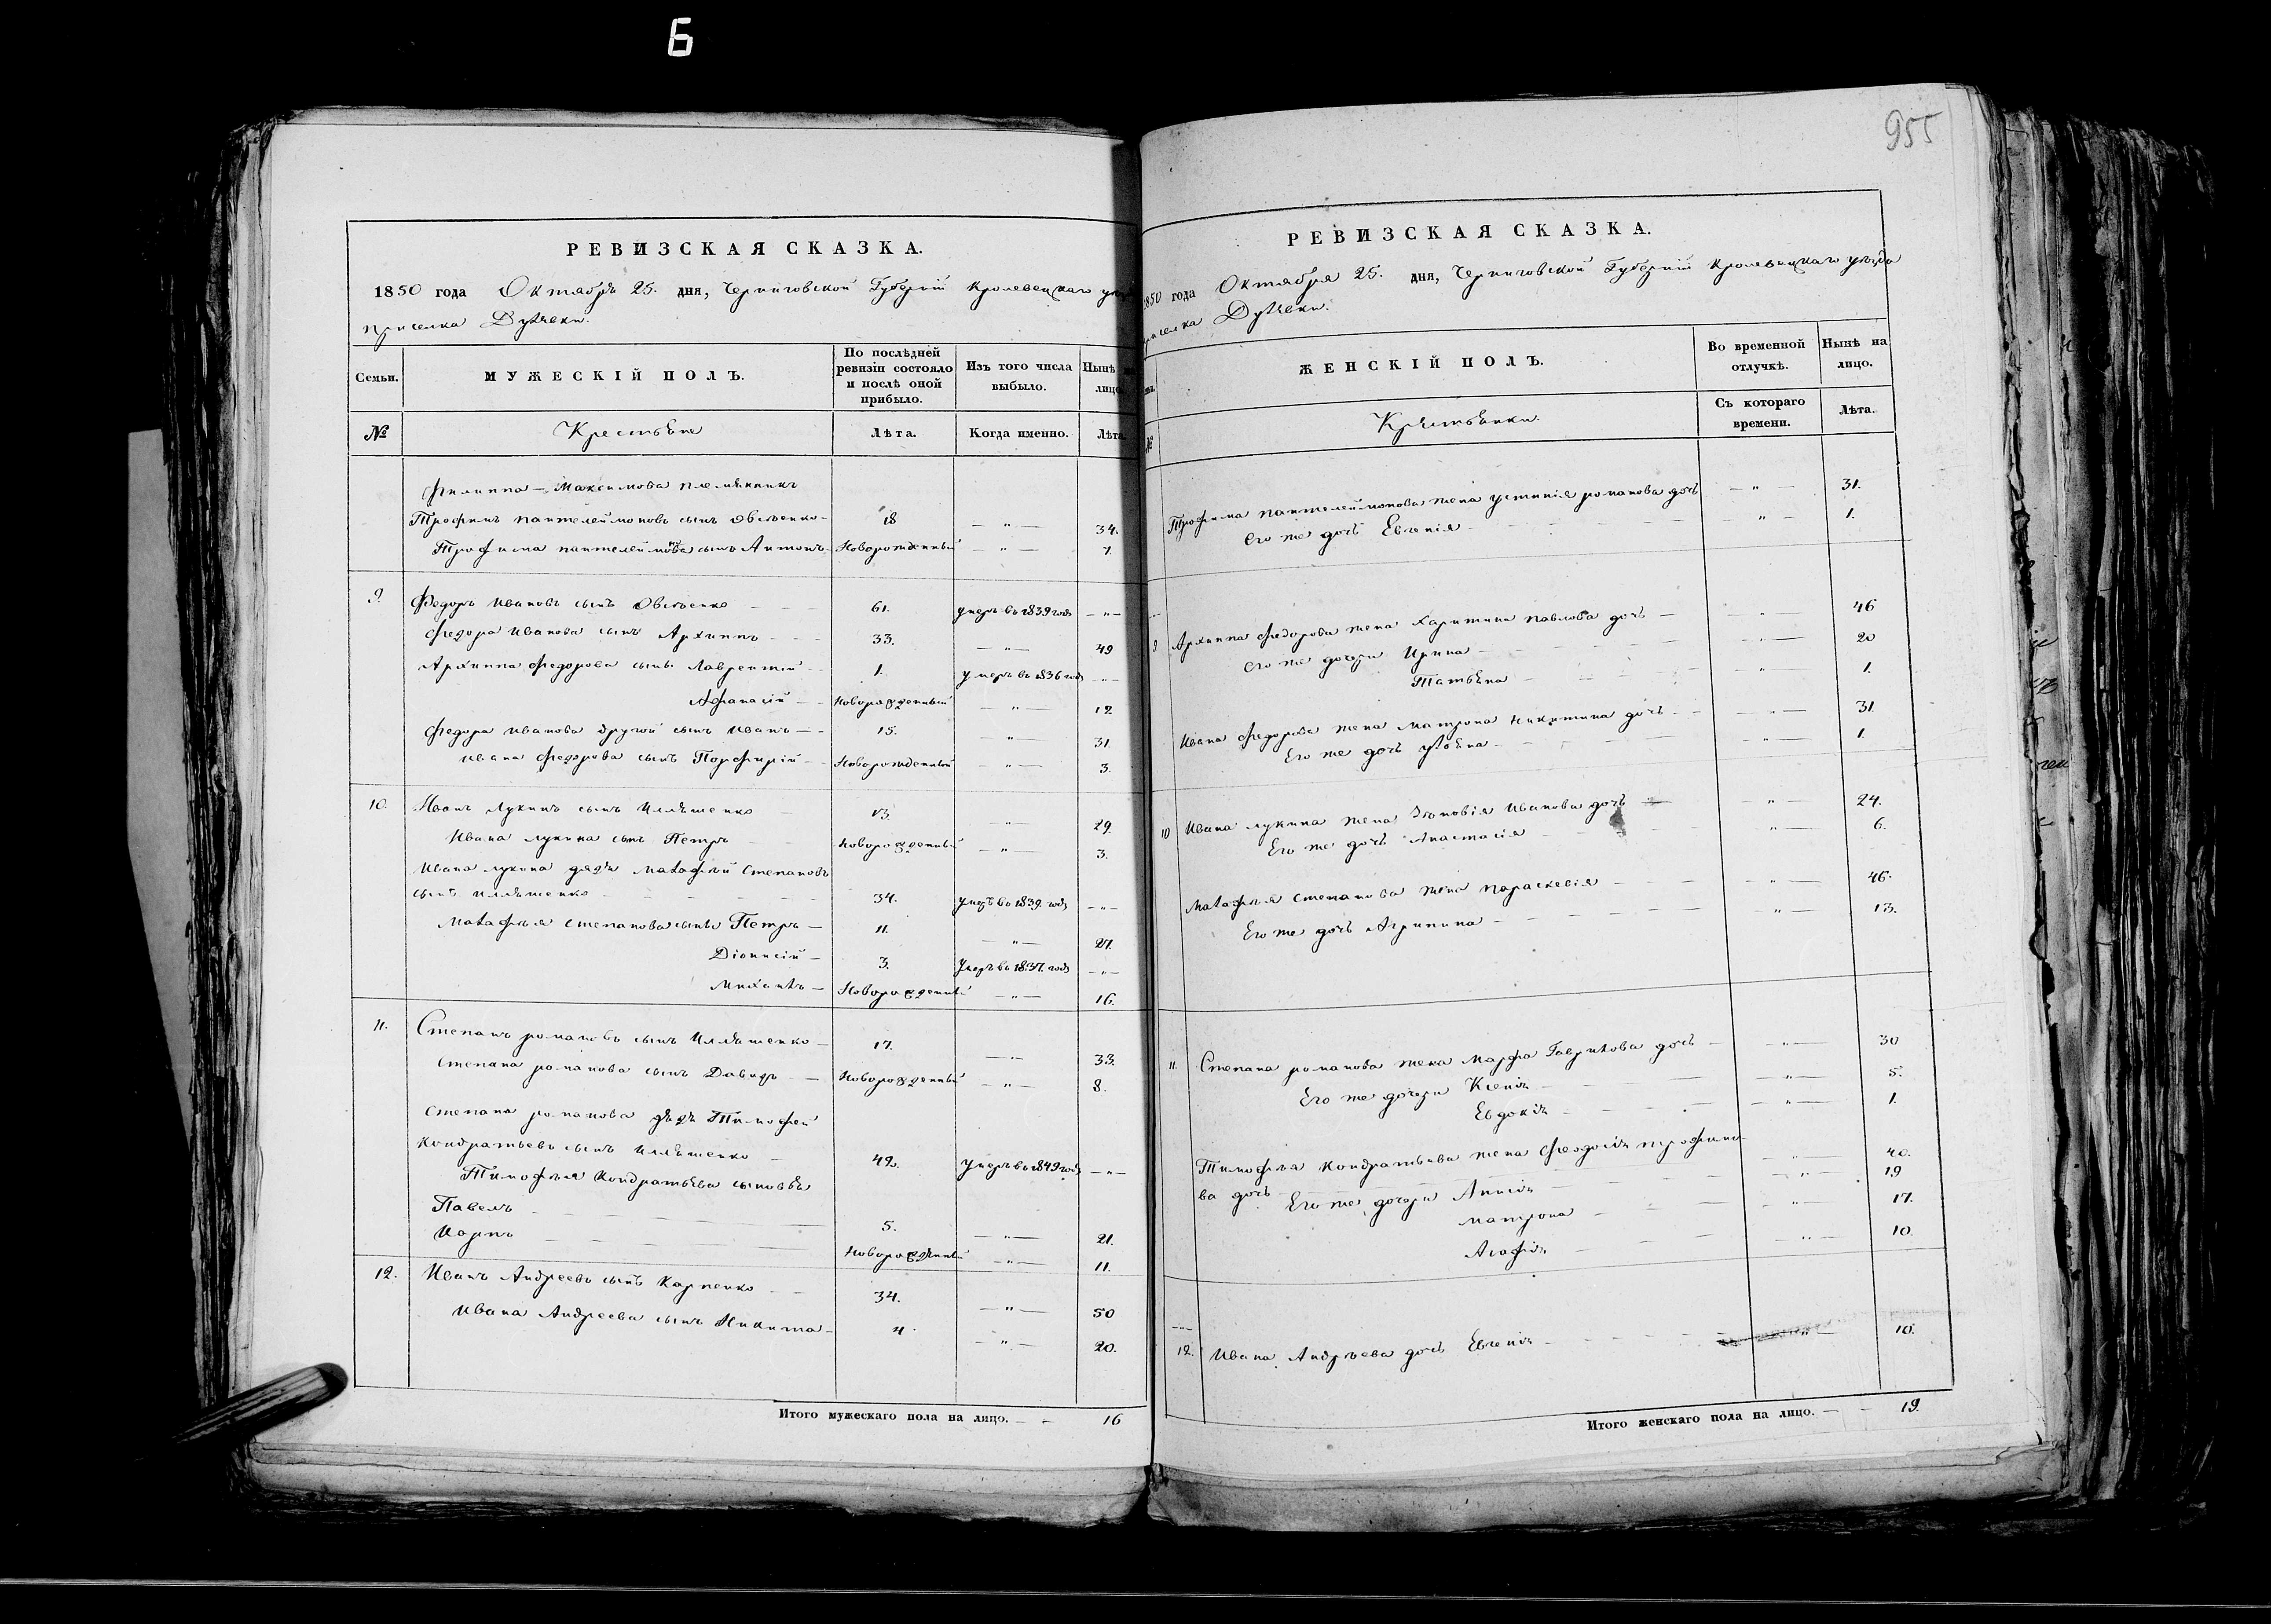 6
955
РЕВИЗСКАЯ СКАЗКА.
1850 года Октября 25. дня, Черниговской Губерніи Кролевецкаго
приселка Дубовки.
Семьи. МУЖЕСКІЙ ПОЛЪ. По послѣдней ревизіи состояло и послѣ оной прибыло. Изъ того числа выбыло. Нынѣ на лицо.
№ Крестьяне Лѣта. Когда именно. Лѣта.
Филиппа Максимова племянникъ
Трофимъ Пантелеймоновъ сынъ Овсѣенко 18 — " — 34.
Трофима Пантелеймонова сынъ Антонъ Новорожденный — " — 7.
9. Федоръ Ивановъ сынъ Овсѣенко 61. умеръ въ 1839 годѣ — " —
Федора Иванова сынъ Архиппъ 33. — " — 49
Архиппа Федорова сынъ Лаврентій 1. умеръ въ 1836 годѣ — " —
Афанасій Новорожденный — " — 12
Федора Иванова другой сынъ Иванъ 15. — " — 31.
Ивана Федорова сынъ Порфирій Новорожденный — " — 3.
10. Иванъ Лукинъ сынъ Илляшенко 13. — " — 29.
Ивана Лукина сынъ Петръ Новорожденный — " — 3.
Ивана Лукина дядя Матафѣй Степановъ
сынъ Илляшенко 34. умеръ въ 1839 годѣ — " —
Матафѣя Степанова сынъ Петръ 11. — " — 27.
Діонисій 3. Умеръ въ 1837. годѣ — " —
Михаилъ Новорожденный — " — 16.
11. Степанъ Романовъ сынъ Илляшенко 17. — " — 33.
Степана Романова сынъ Давидъ Новорожденный — " — 8.
Степана Романова дядя Тимофей
Кондратьевъ сынъ Илляшенко 42. Умеръ въ 1849 годѣ — " —
Тимофѣя Кондратьева сыновья
Павелъ 5. — " — 21.
Карпъ Новорожденный — " — 11.
12. Иванъ Андреевъ сынъ Карпенко 34. — " — 50
Ивана Андреева сынъ Никита 4. — " — 20.
Итого мужескаго пола на лицо. — — 16
РЕВИЗСКАЯ СКАЗКА.
1850 года Октября 25. дня, Черниговской Губерніи Кролевецкаго уѣзда
приселка Дубовки.
№ ЖЕНСКІЙ ПОЛЪ. Во временной отлучкѣ. Нынѣ на лицо.
Крестьянки. Съ котораго времени. Лѣта.
Трофима Пантелеймонова жена Устинія Романова дочь — " — 31.
Его же дочь Евгенія — " — 1.
9 Архиппа Федорова жена Харитина Павлова дочь — " — 46
Его же дочери Ирина — " — 20
Татьяна " 1.
Ивана Федорова жена Матрона Никитина дочь — " — 31.
Его же дочь Ульяна — " — 1.
10 Ивана Лукина жена Зѣновія Иванова дочь — " — 24.
Его же дочь Анастасія " 6.
Матафѣя Степанова жена Параскевія — " — 46.
Его же дочь Агрипина " 13.
11. Степана Романова жена Марфа Гаврилова дочь — " — 30
Его же дочери Ксенія — " — 5.
Евдокія — " — 1.
Тимофѣя Кондратьева жена Феодосія Трофимо-
ва дочь — " — 40.
Его же дочери Аннія — " — 19
Матрона " 17.
Агафія — " — 10.
12. Ивана Андрѣева дочь Евгенія — " — 10.
Итого женскаго пола на лицо. — — 19.